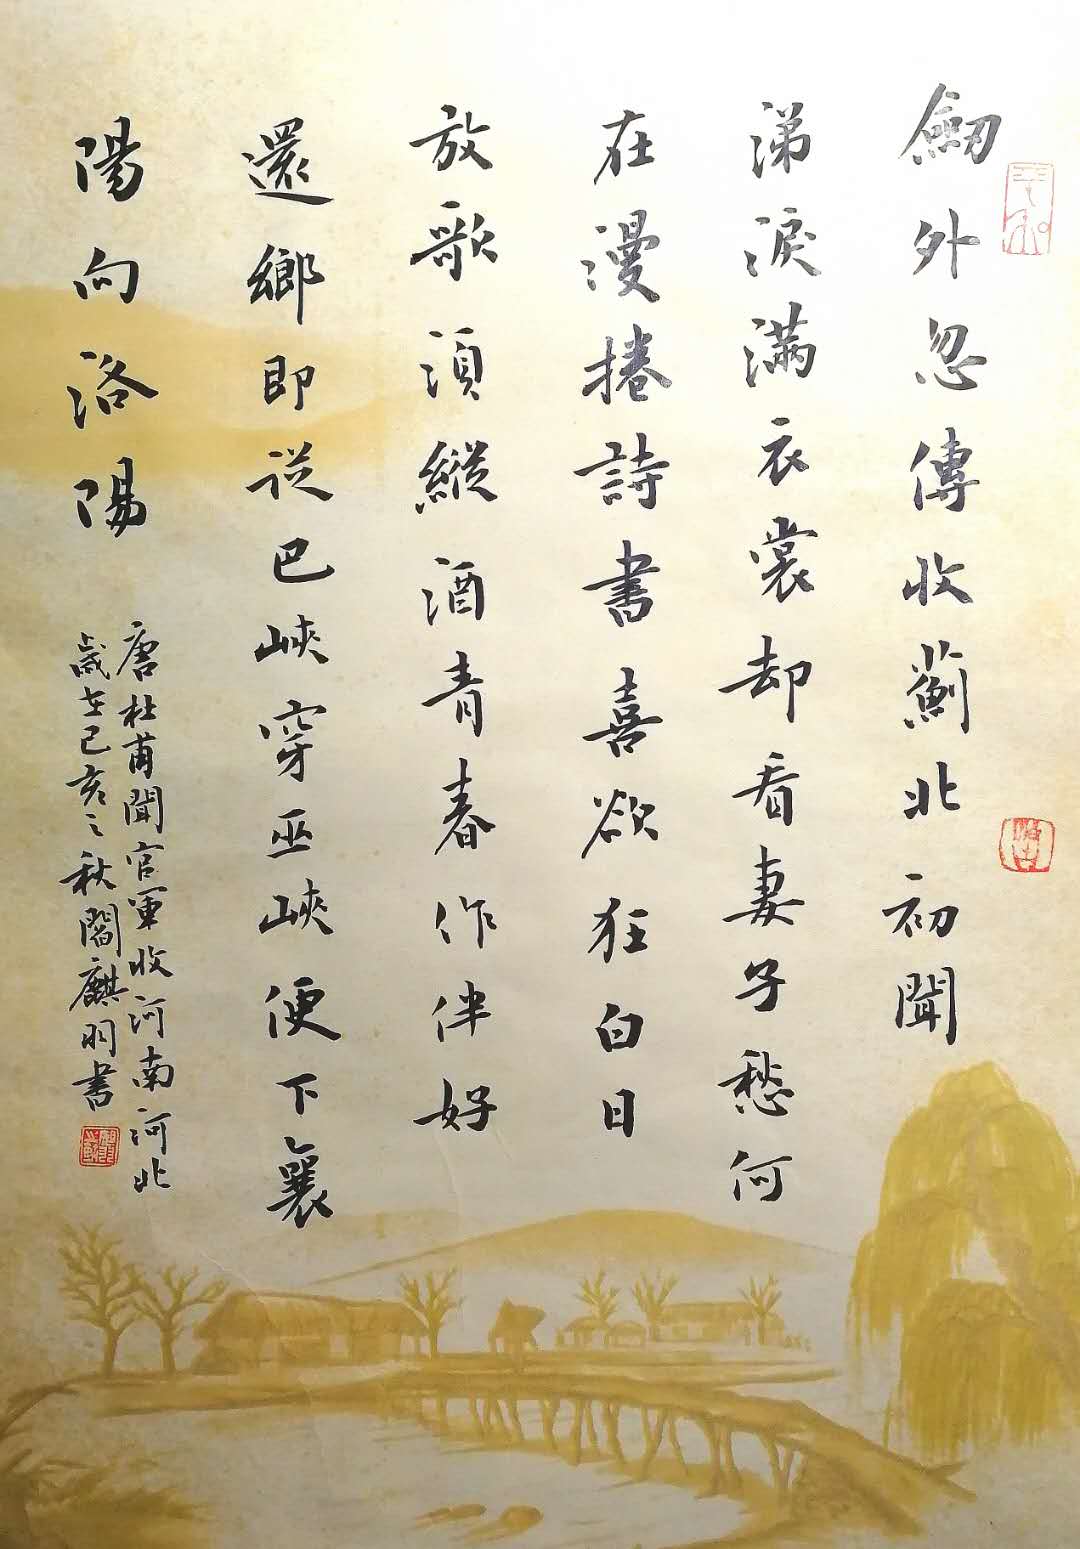 劒外忽傳收薊北初聞
涕淚滿衣裳却看妻子愁何
在漫捲詩書喜欲狂白日
放歌須縱酒青春作伴好
還鄉即從巴峽穿巫峽便下襄
陽向洛陽
唐杜甫聞官軍收河南河北
歲在己亥之秋閻麒羽書